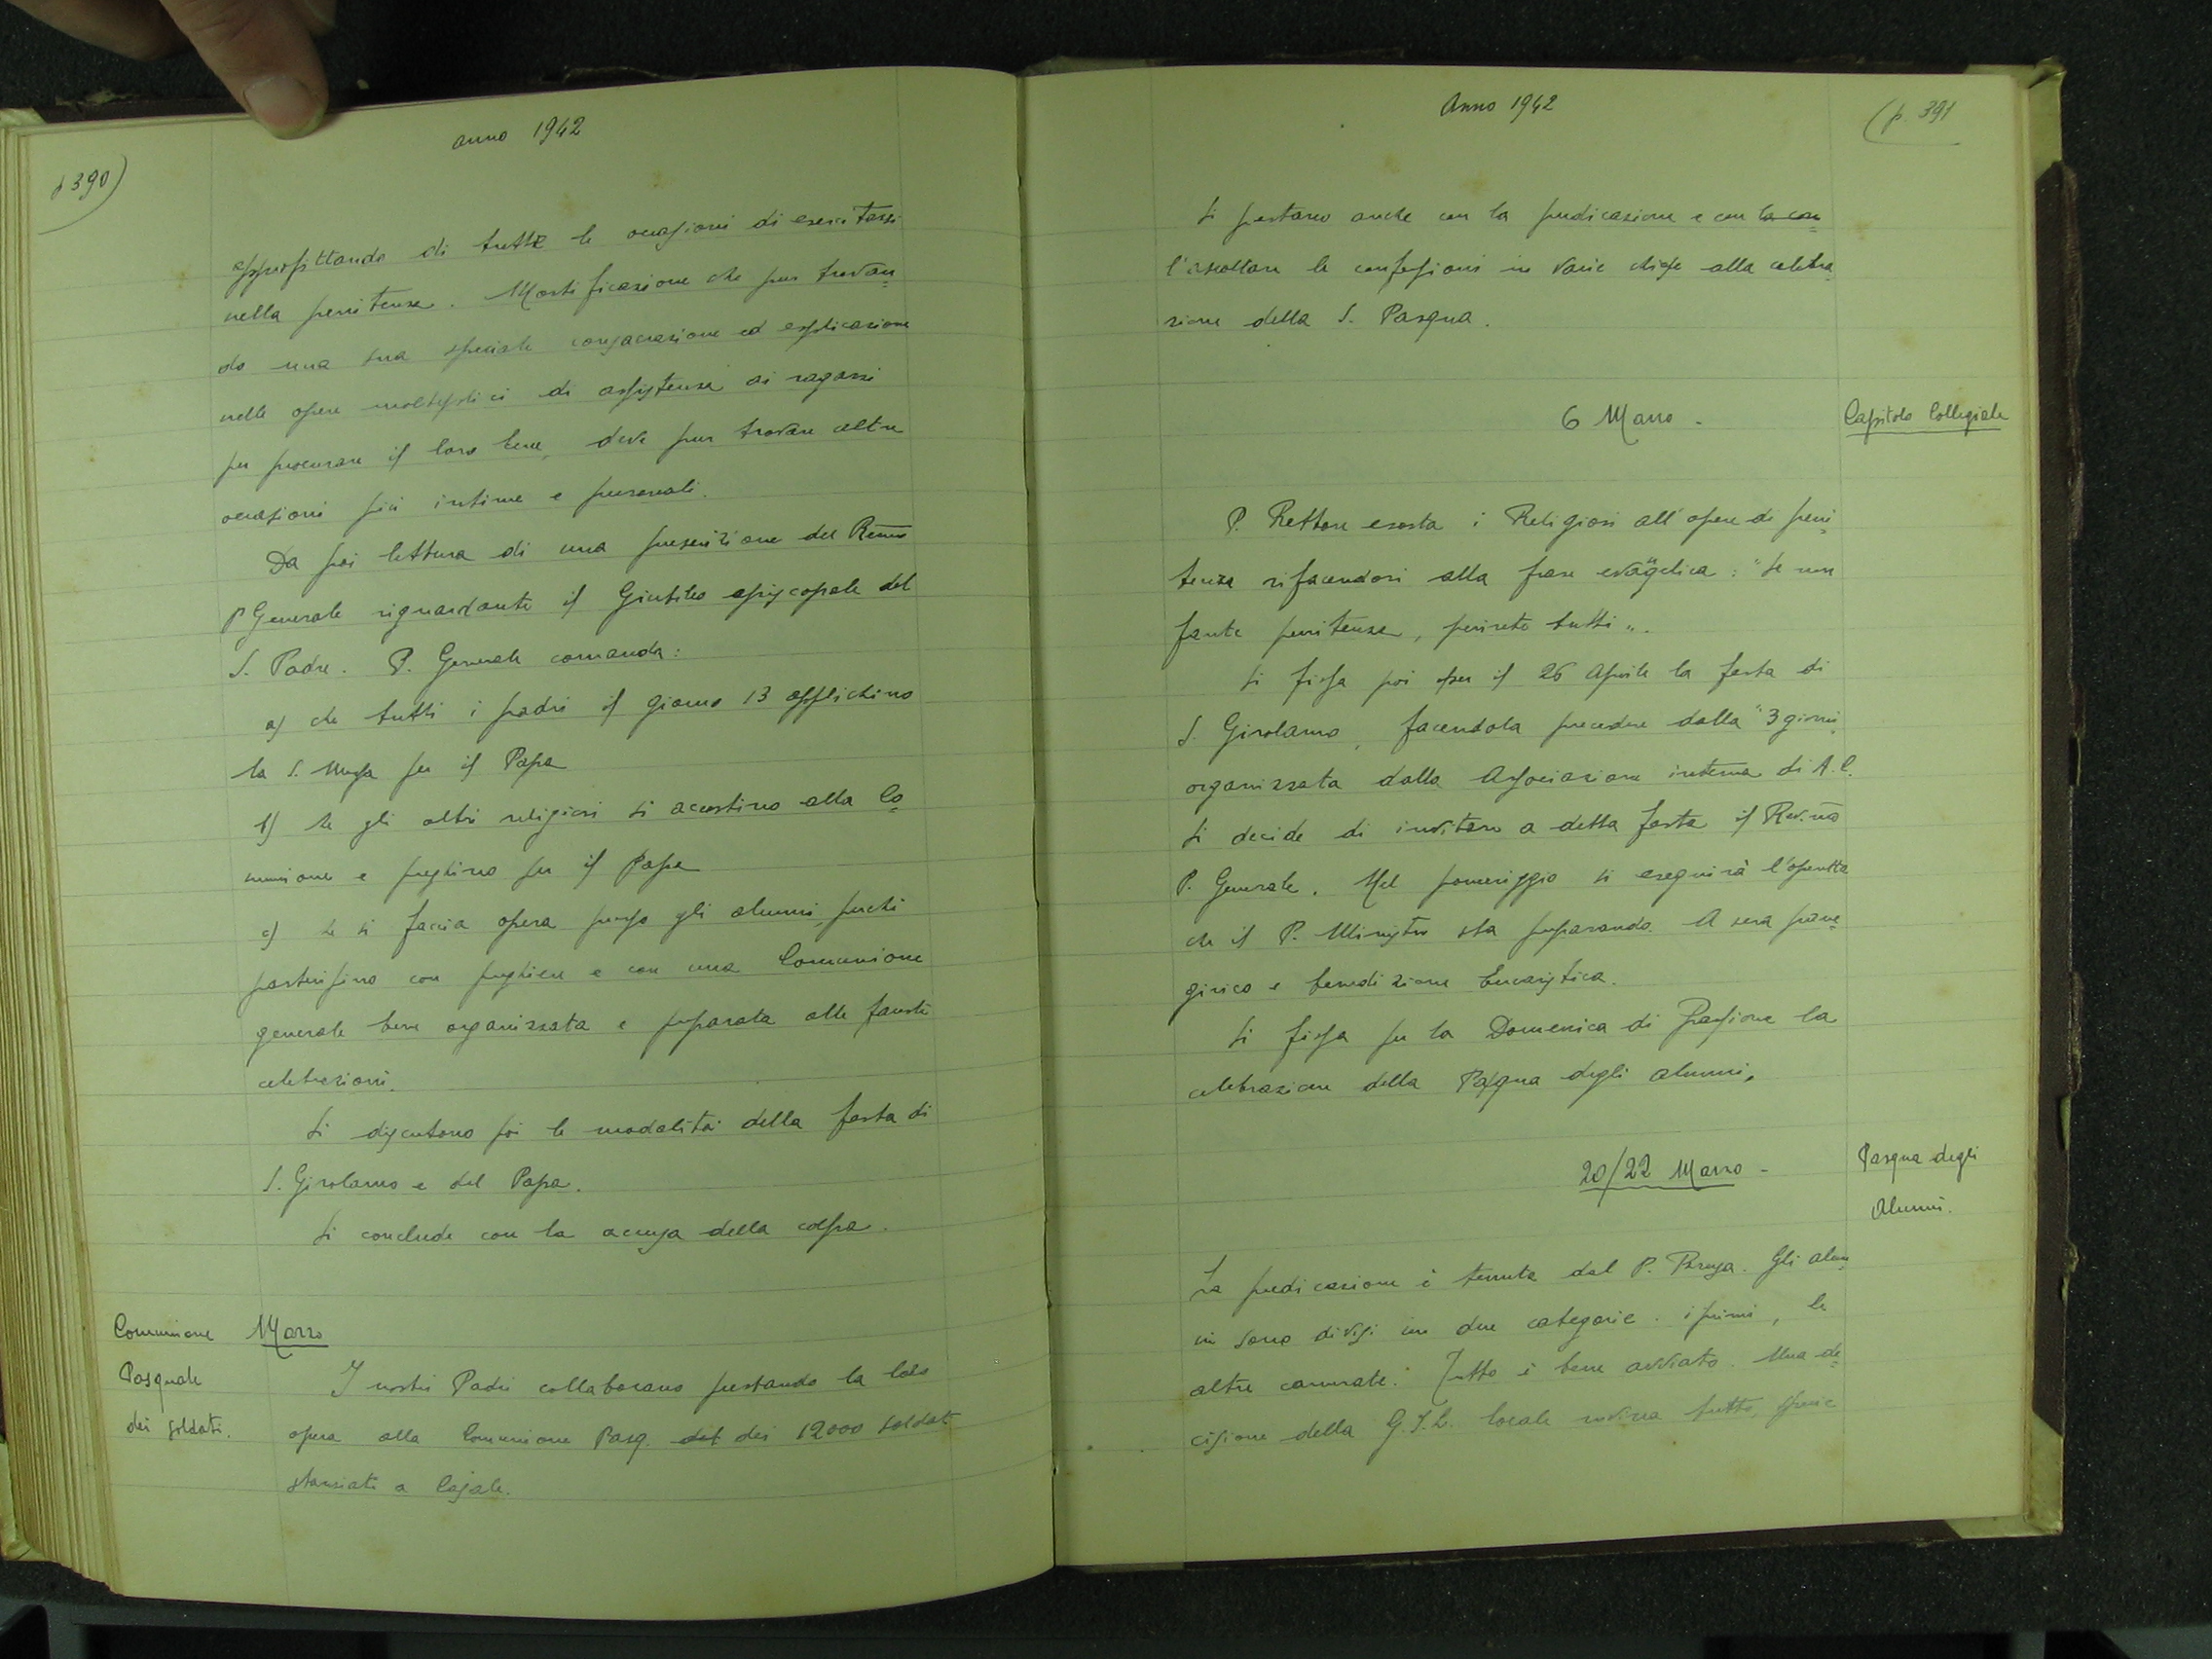 anno 1942
p 390)
approfittando di tutte le occasioni di esercitarsi
nella penitenza. Mortificazione che pur trovan=
do una sua speciale consacrazione ed esplicazione
nelle opere molteplici di assistenza ai ragazzi
per procurare il loro bene, deve pur trovare altre
occasioni più intime e personali.
Da poi lettura di una prescrizione del Remo
P Generale riguardante il Giubileo episcopale del
S. Padre. P. Generale comanda:
a) che tutti i padri il giorno 13 applichino
la S. Messa per il Papa
b) che gli altri religiosi si accostino alla Co=
munione e preghino per il Papa
c) che si faccia opera presso gli alunni, perchè
partecipino con preghiere e con una Comunione
generale bene organizzata e preparata alle fauste
celebrazioni.
Si discutono poi le modalità della festa di
S. Girolamo e del Papa.
Si conclude con la accusa della colpa.
Comunione
Pasquale
dei soldati.
Marzo
I nostri Padri collaborano prestando la loro
opera alla Comunione Pasq. del dei 12000 soldati
stanziati a Casale.
Anno 1942
(p. 391
Si prestano anche con la predicazione e con la con=
l'ascoltare le confessioni in varie chiese alla celebra
zione della S. Pasqua.
6 Marzo -
Capitolo Collegiale
P. Rettore esorta i Religiosi all'opere di peni=
tenza rifacendosi alla frase evangelica: "Se non
farete penitenza, perirete tutti".
Si fissa poi per il 26 Aprile la festa di
S. Girolamo, facendola precedere dalla "3 giorni"
organizzata dalla Associazione interna di A.C.
Si decide di invitare a detta festa il Rev.mo
P. Generale. Nel pomeriggio si eseguirà l'operetta
che il P. Ministro sta preparando. A sera pane=
girico e benedizione Eucaristica.
Si fissa per la Domenica di Passione la
celebrazione della Pasqua degli alunni.
20/22 Marzo -
Pasqua degli
Alunni.
La predicazione è tenuta dal P. Gli alun=
ni sono divisi in due categorie. i primi, le
altre camerate. Tutto è bene avviato. Una de=
cisione della G.I.L. locale rovina tutto, specie